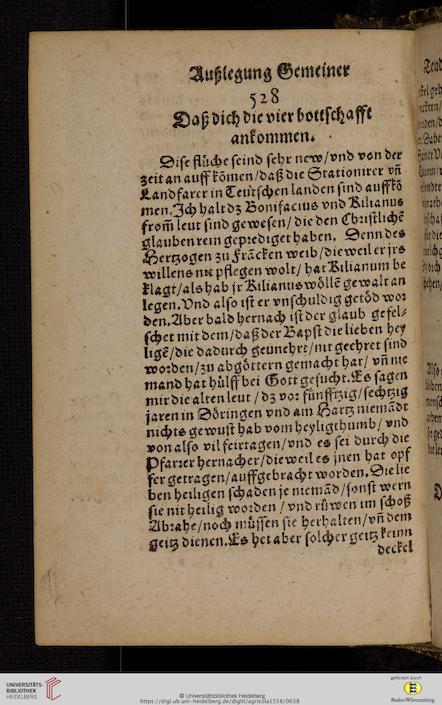 Außlegung Gemeiner
528
Daß dich die vier bottschafft
ankommen.
Dise flüche seind sehr new/vnd von der
zeit an auff kõmen/daß die Stationirer vñ
Landfarer in Teutschen landen sind auffkõ
men. Ich halt dz Bonifacius vnd Kilianus
from̃ leut sind gewesen/ die den Christlichẽ
glauben rein geprediget haben. Denn des
Hertzogen zů Frãcken weib/dieweil er jrs
willens nit pflegen wolt/ hat Kilianum be
klagt/als hab jr Kilianus wöllẽ gewalt an
legen. Vnd also ist er vnschuldig getöd wor
den. Aber bald hernach ist der glaub gefel-
schet mit dem/daß der Bapst die lieben hey
ligẽ/die dadurch geunehrt/nit geehret sind
worden/zu abgöttern gemacht hat/ vñ nie
mand hat hülff bei Gott gesucht. Es sagen
mir die alten leut/ dz vor fünfftzig/sechtzig
jaren in Döringen vnd am Hartz niemãdt
nichts gewust hab vom heyligthumb/ vnd
von also vil feirtagen/vnd es sei durch die
Pfarrer hernacher/die weil es jnen hat opf
fer getragen/auffgebracht worden. Die lie
ben heiligen schaden je niemãd/sonst wern
sie nit heilig worden / vnd růwen im schoß
Abrahe/noch müssen sie herhalten/vñ dem
geitz dienen. Es het aber solcher geitz keinn
deckel
UNIVERSITÄTS-
BIBLIOTHEK
HEIDELBERG
© Universitätsbibliothek Heidelberg
https://digi.ub.uni-heidelberg.de/diglit/agricola1558/0638
gefördert durch
Baden-Württemberg